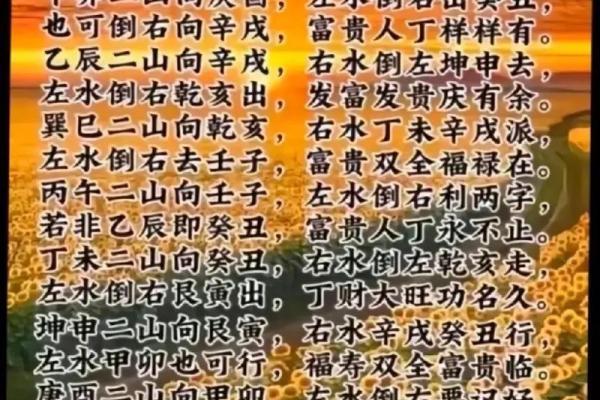 卯二山向庚酉，左水倒右出癸丑，
也可倒右向辛戌，富贵人丁样样有。
乙辰二山向辛戌，右水倒左坤申去，
左水倒右乾亥出，发富发贵庆有余。
巽巳二山向乾亥，右水丁未辛戌派，
左水倒右去壬子，富贵双全福禄在。
丙午二山向壬子，左水倒右利两字，
若非乙辰即癸丑，富贵人丁永不止。
丁未二山向癸丑，右水倒左乾亥走，
左水倒右艮寅出，丁财大旺功名久。
坤申二山向艮寅，右水辛戌癸丑行，
左水甲卯也可行，福寿双全富贵临。
庚酉二山向甲卯，左水倒右要记好，